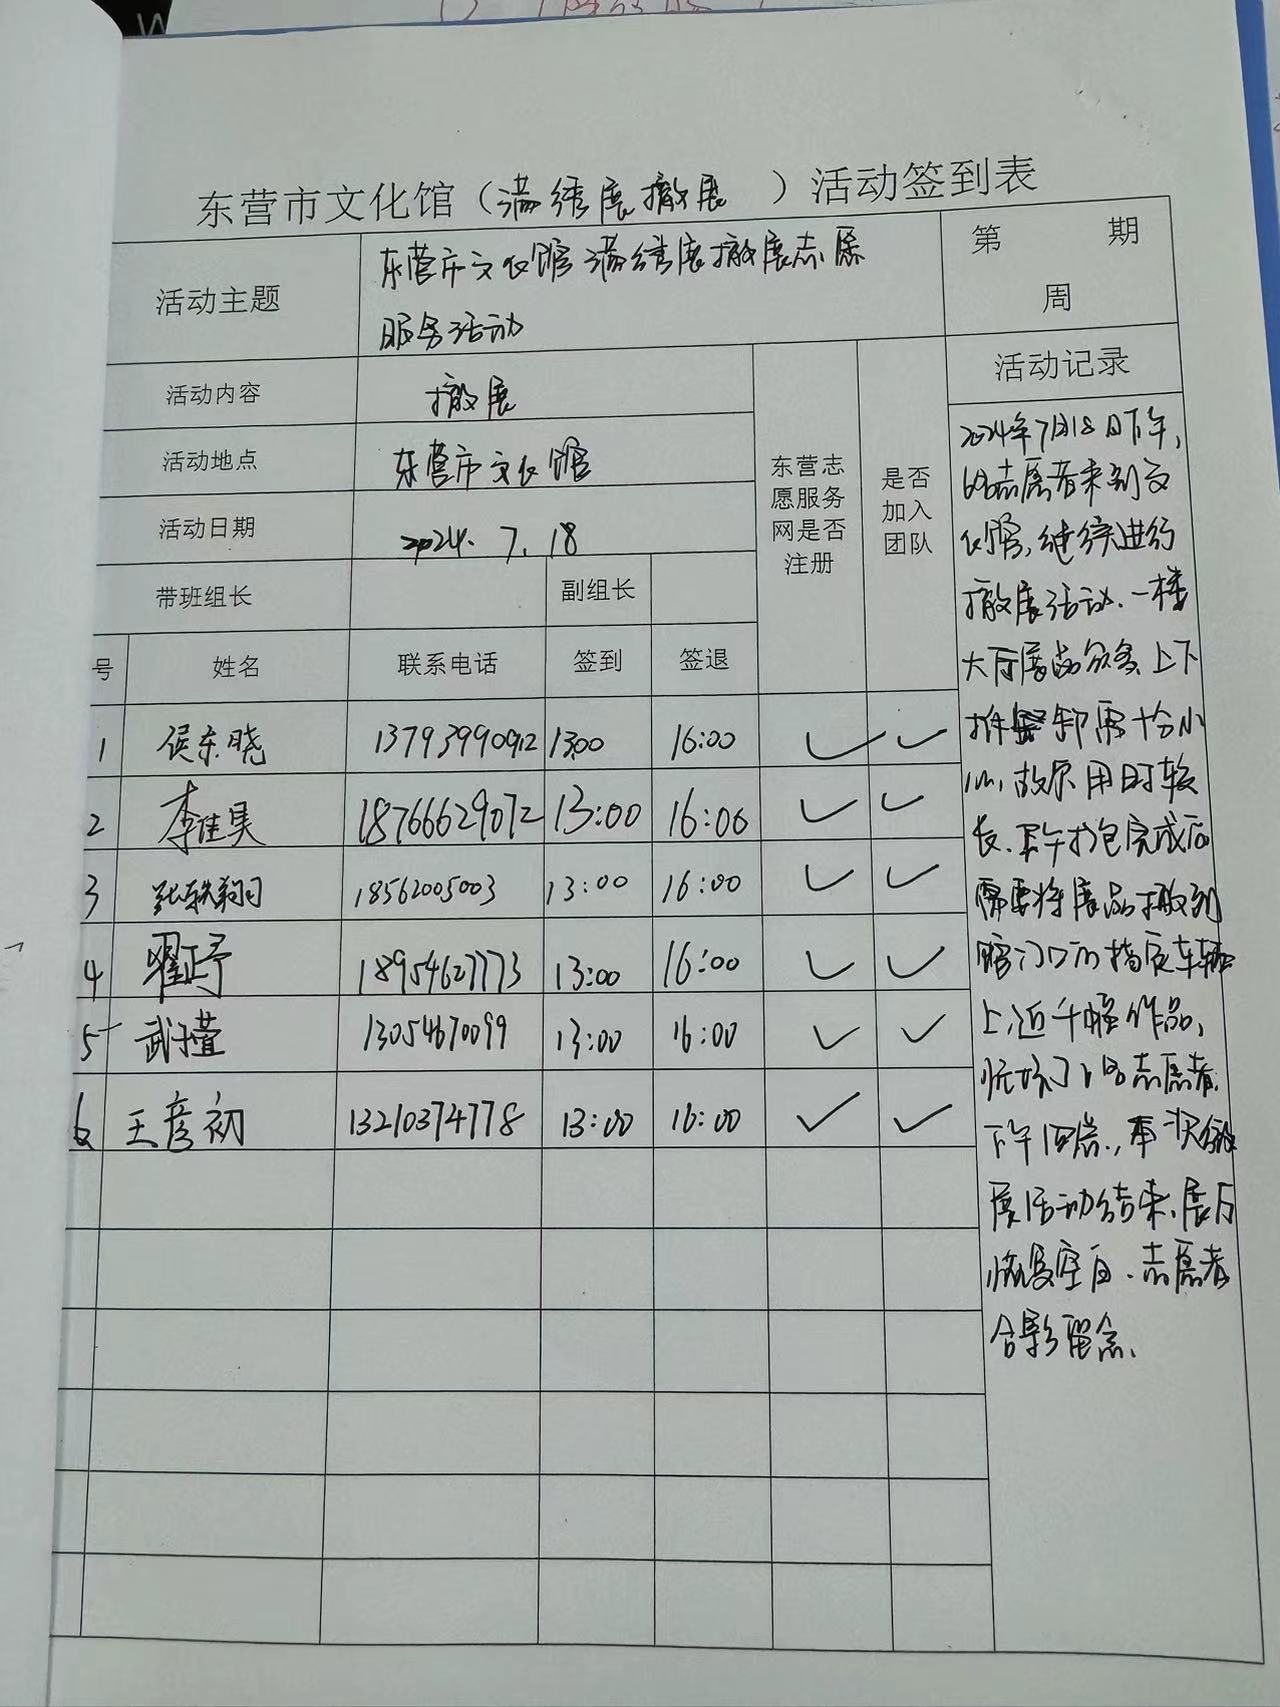 东营市文化馆（满绣展撤展）活动签到表
活动主题
东营市文化馆满绣展撤展志愿
服务活动
第 期
周
活动内容
撤展
活动记录
活动地点
东营市文化馆
活动日期
2024. 7. 18
东营志
愿服务
网是否
注册
是否
加入
团队
带班组长
副组长
号 姓名 联系电话 签到 签退
1 侯东晓 13793990912 13:00 16:00 ✓ ✓
2 李佳昊 18766629072 13:00 16:00 ✓ ✓
3 张轶翔 18562005003 13:00 16:00 ✓ ✓
4 翟正予 18954627773 13:00 16:00 ✓ ✓
5 武子萱 13054670099 13:00 16:00 ✓ ✓
6 王彦初 13210374778 13:00 16:00 ✓ ✓
2024年7月18日下午,
6名志愿者来到文
化馆,继续进行
撤展活动.一楼
大厅展品众多,上下
拆卸需十分小
心,故尔用时较
长.打包完成后
需要将展品搬到
馆门口的指定车辆
上,近千幅作品,
忙坏了6名志愿者.
下午四点.,本次撤
展活动结束,展厅
恢复空白.志愿者
合影留念.